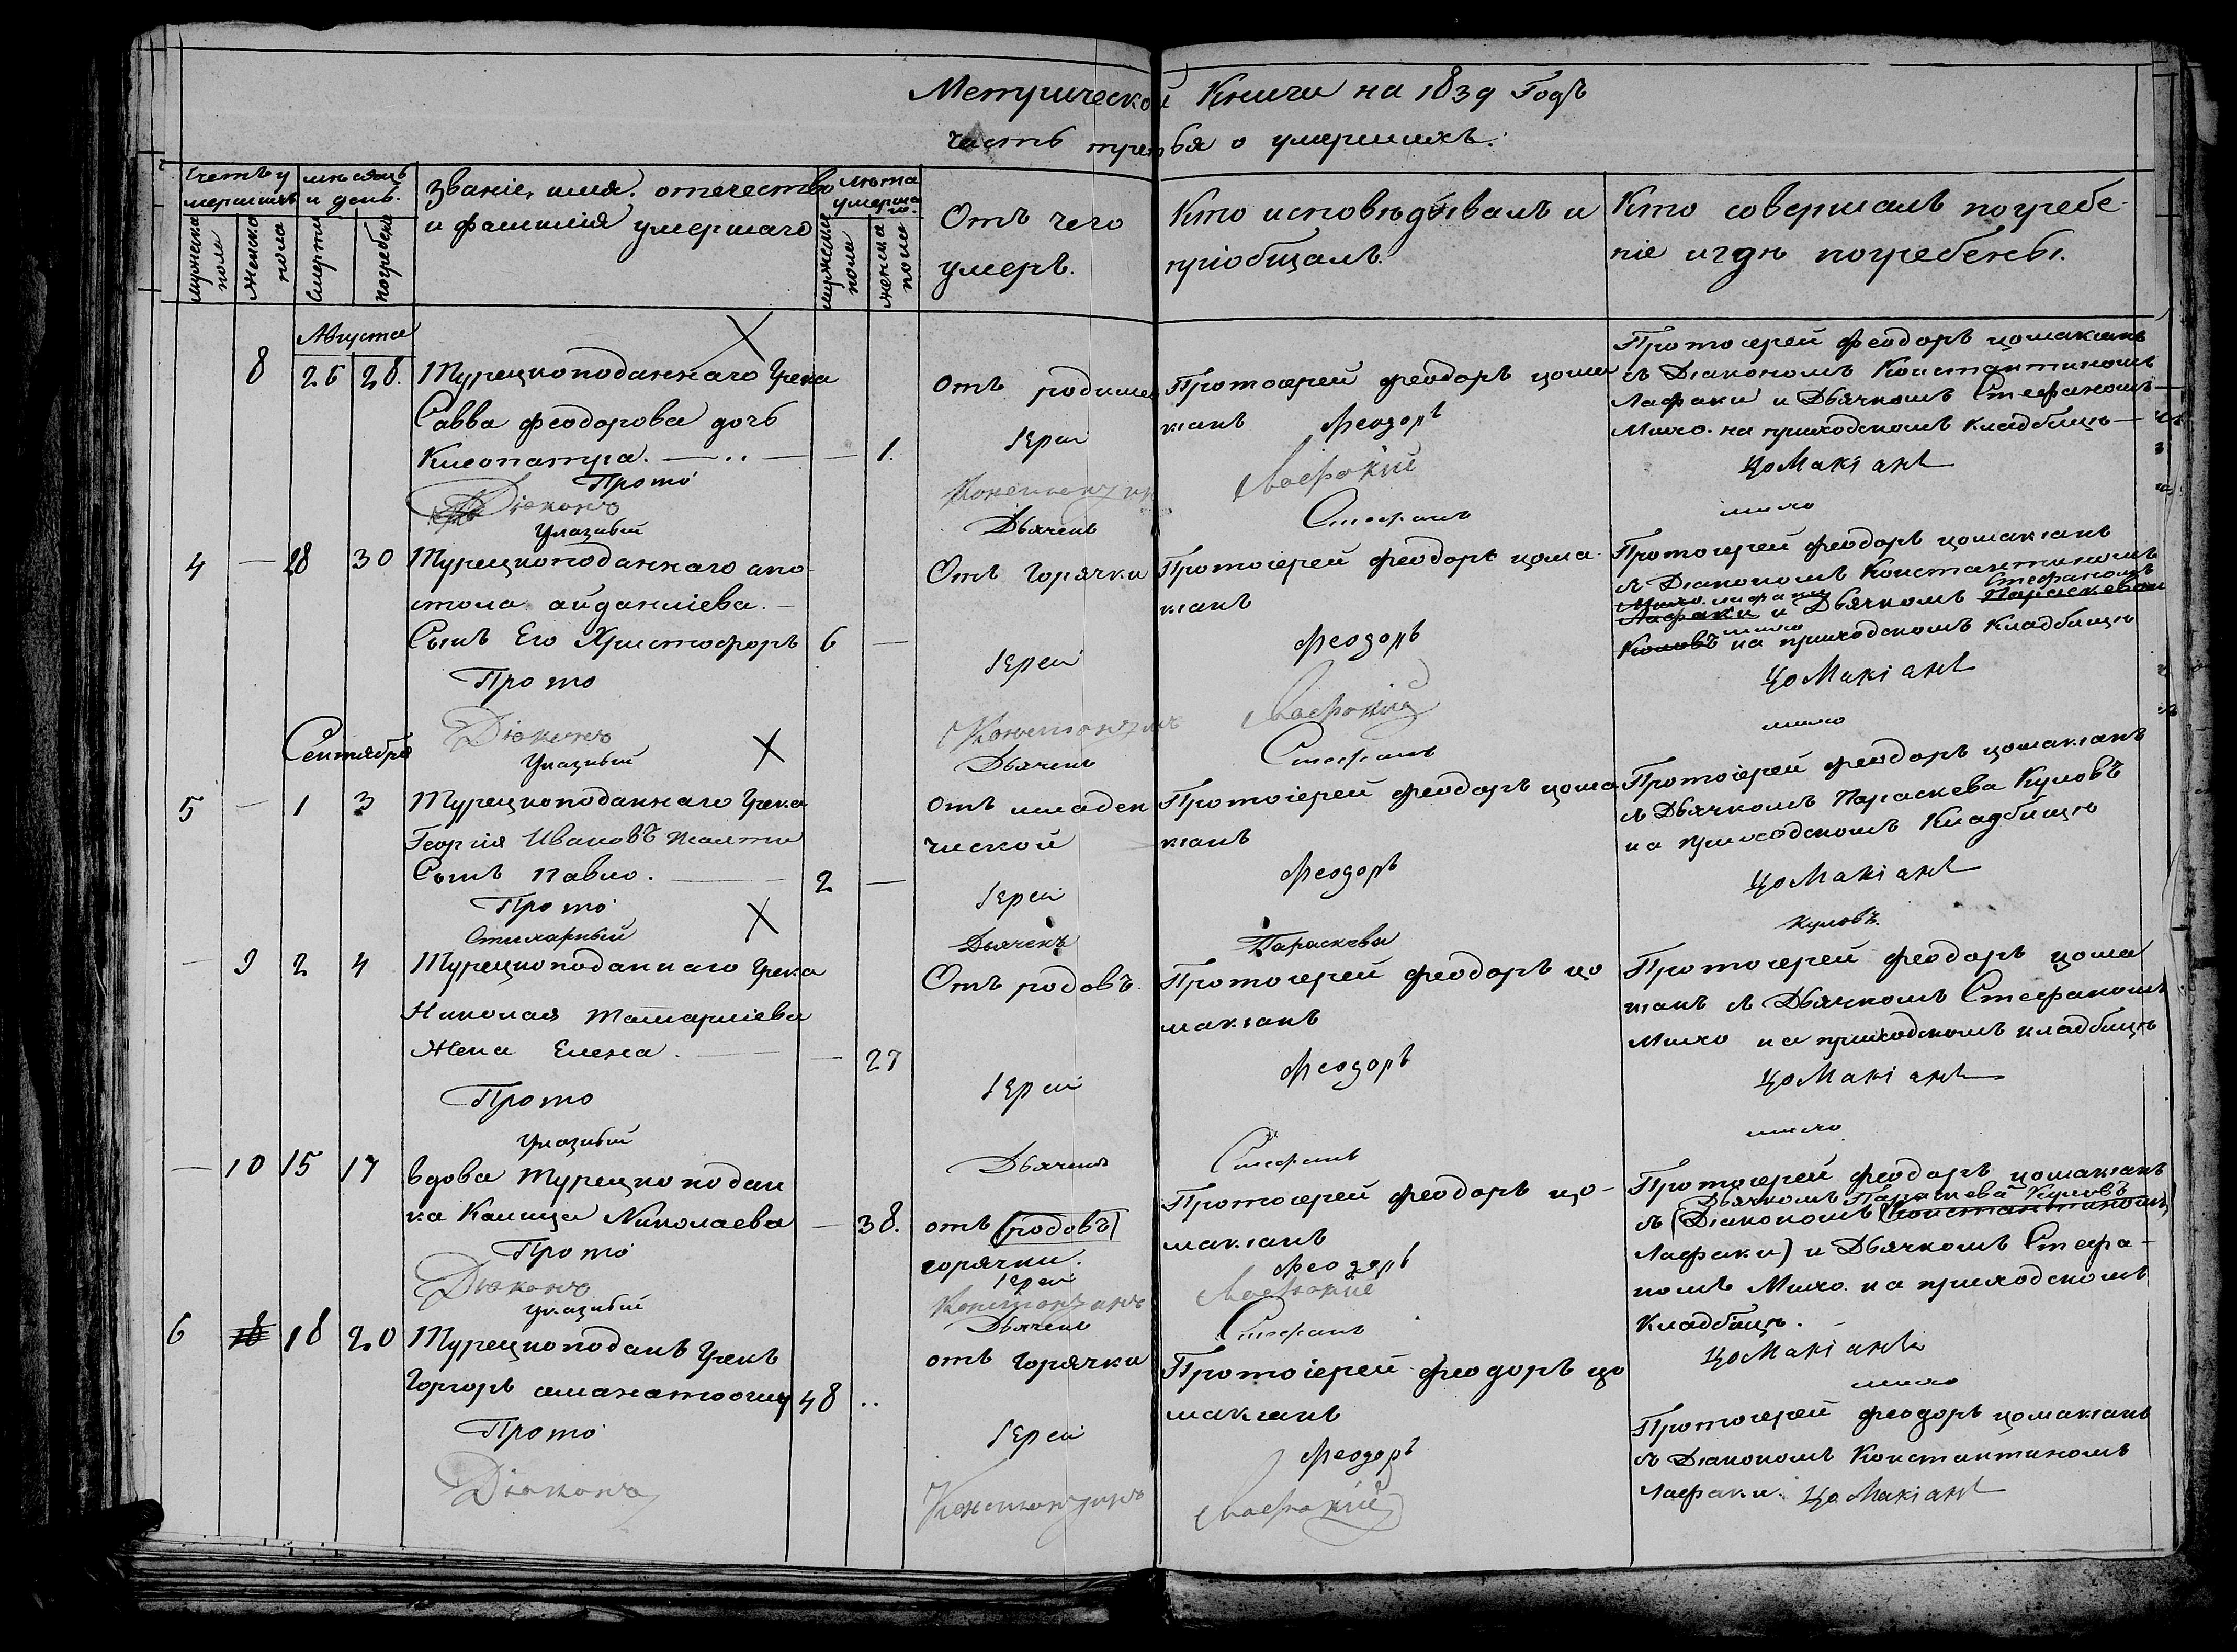 Метрической Книги на 1839 Годъ
часть третья о умершихъ.
Счетъ умершихъ
мѣсяцъ и день.
званіе, имя. отечество
и фамилія умершаго
лѣта умершаго.
Отъ чего
умеръ.
Кто исповѣдывалъ и
пріобщалъ.
Кто совершалъ погребе-
ніе и гдѣ погребены.
мужеска пола
женска пола
Смерти
погребен
мужеска пола
женска пола
Августа
8 26 28. Турецкоподаннаго Грека
Савва Феодорова дочь
Клеопатра. 1.
Отъ родимец
Протоіерей Феодоръ цома
кіанъ
Протоіерей Феодоръ цомакіанъ
съ Діакономъ Константиномъ
Лафаки и Дьячкомъ Стефаномъ
Михо. на приходскомъ кладбищѣ
Прото Іерей Феодоръ ЦоМакіанъ
Діаконъ Константинъ Лафокій
Указный Дьячекъ Стефанъ михо
4 — 28 30 Турецкоподаннаго апо
стола айданліева.
Сынъ Его Христофоръ 6 —
Отъ Горячки
Протоіерей Феодоръ цома
кіанъ
Протоіерей Феодоръ цомакіанъ
съ Діакономъ Константиномъ
Стефаномъ
Лафаки и Дьячкомъ Параскевои
михо
на приходскомъ Кладбищѣ
Прото Іерей Феодоръ ЦоМакіанъ
Діаконъ Константинъ Лафокій
Указный Дьячекъ Стефанъ михо
Сентября
5 — 1 3 Турецкоподаннаго Грека
Георгія Ивановъ Жалти
Сынъ Павло. 2 —
отъ младен
ческой
Протоіерей Феодоръ цома
кіанъ
Протоіерей Феодоръ цомакіанъ
съ Дьячкомъ Параскева Куловъ
на приходскомъ Кладбищѣ
Прото Іерей Феодоръ ЦоМакіанъ
Стихарный Дьячекъ Параскева Куловъ
— 9 2 4 Турецкоподаннаго Грека
Николая Татарліева
Жена Елена. — 27
Отъ родовъ.
Протоіерей Феодоръ цо
макіанъ
Протоіерей Феодоръ цома
кіанъ съ Дьячкомъ Стефаномъ
Михо на приходскомъ кладбищѣ
Прото Іерей Феодоръ ЦоМакіанъ
Указный Дьячекъ Стефанъ михо
— 10 15 17 вдова Турецкоподан
ка Калица Николаева — 38.
отъ (родовъ)
горячки.
Протоіерей Феодоръ цо-
макіанъ
Протоіерей Феодоръ цомакіанъ
Дьячкомъ Параскева Куловъ
съ (Діакономъ Константиномъ
Лафаки) и Дьячкомъ Стефа-
номъ Михо. на приходскомъ
Кладбищѣ.
Прото Іерей Феодоръ ЦоМакіанъ
Діаконъ Константинъ Лафокій
Указный Дьячекъ Стефанъ михо
6 18 18 20 Турецкоподанъ Грекъ
Горгоръ аманатооглу 48 ..
отъ горячки
Протоіерей Феодоръ цо
макіанъ
Протоіерей Феодоръ цомакіанъ
съ Діакономъ Константиномъ
Лафаки.
Прото Іерей Феодоръ ЦоМакіанъ
Діаконъ Константинъ Лафокій